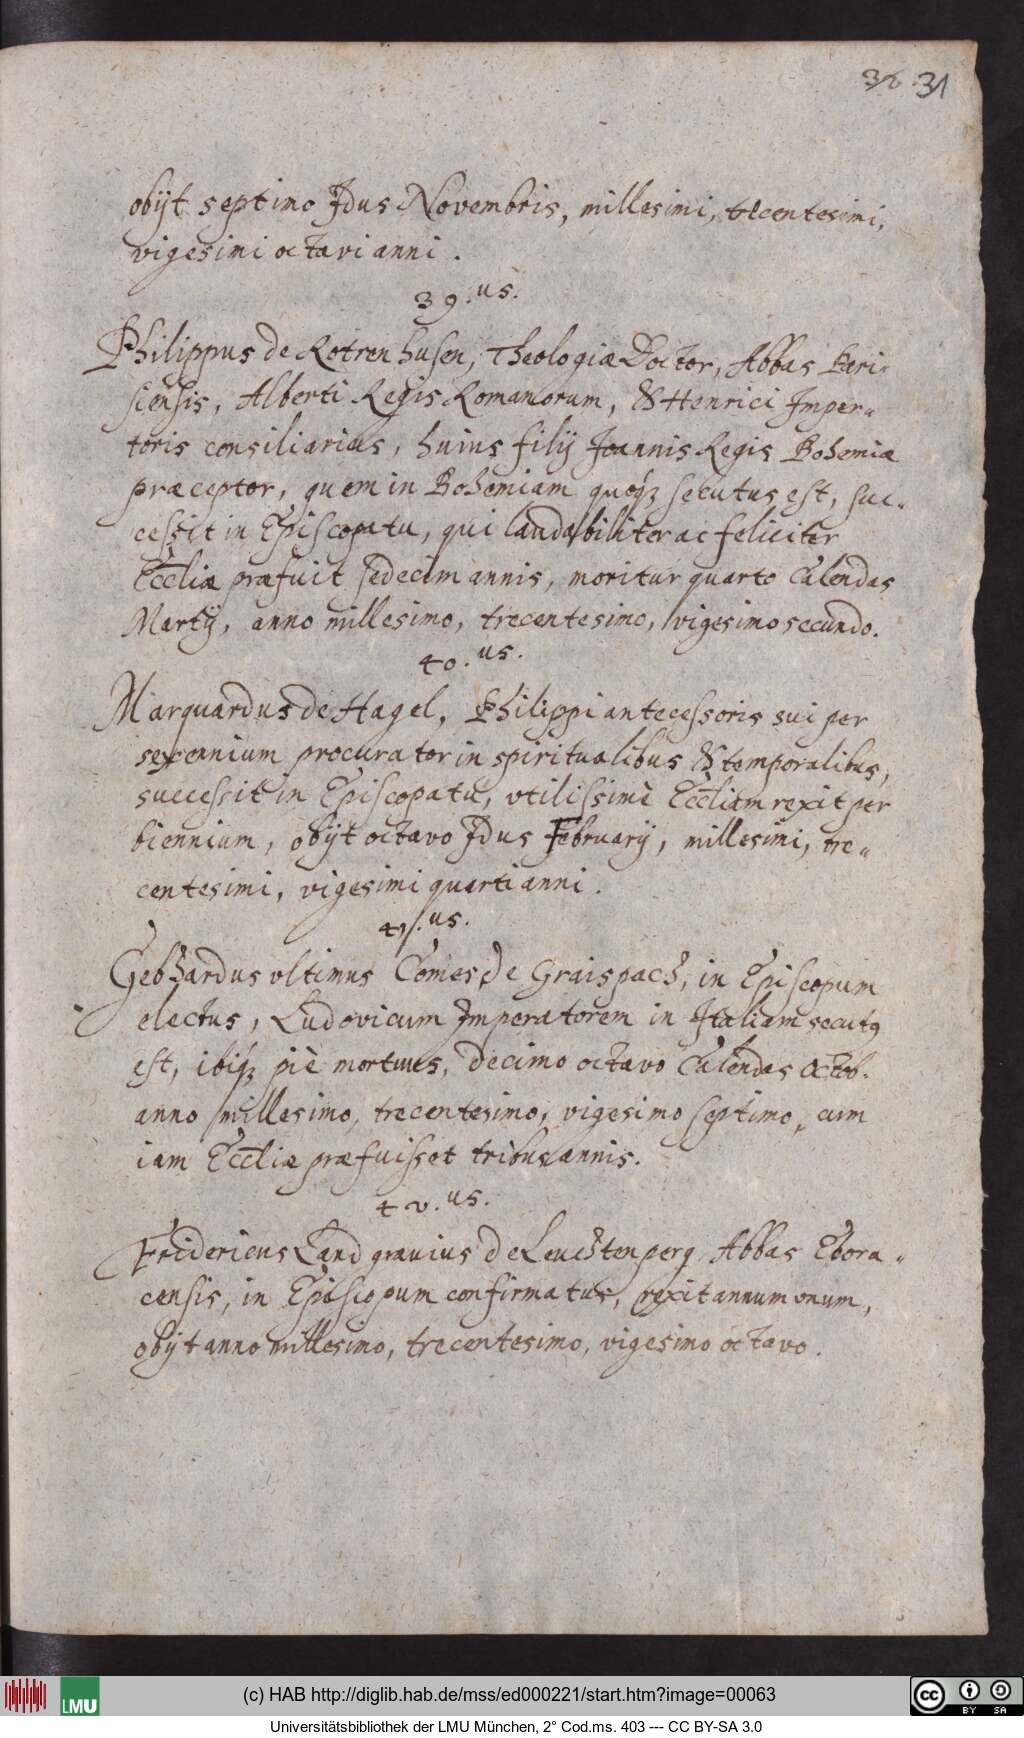 32. 31
obijt septimo Jdus Novembris, millesimi, trecentesimi,
vigesimi octavi anni.
39.us.
Philippus de Rotrenhusen, Theologiæ Doctor, Abbas Peri-
siensis, Alberti Regis Romanorum, & Henrici Imper-
toris consiliarius, huius filij Joannis Regis Bohemiæ
præceptor, quem in Bohemiam quoqz secutus est, suc-
cessit in Episcopatu, qui laudabiliter ac feliciter
Eccliæ præfuit sedecim annis, moritur quarto Calendas
Martij, anno millesimo, trecentesimo, vigesimo secundo.
40.us.
Marquardus de Hagel, Philippi antecessoris sui per
sexennium procurator in spiritualibus & temporalibus,
successit in Episcopatu, vtilissimè Eccliam rexit per
biennium, obijt octavo Jdus Februarij, millesimi, tre-
centesimi, vigesimi quarti anni.
41.us.
Gebhardus vltimus Comes de Graispach, in Episcopum
electus, Ludovicum Imperatorem in Italiam secutq
est, ibiqz piè mortuus, decimo octavo Calendas Octob.
anno millesimo, trecentesimo, vigesimo septimo, cum
iam Eccliæ præfuisset tribus annis.
42.us.
Fridericus Landgravius de Leuchtenperg Abbas Ebora-
censis, in Episcopum confirmatus, rexit annum vnum,
obijt anno millesimo, trecentesimo, vigesimo octavo.
LMU
(c) HAB http://diglib.hab.de/mss/ed000221/start.htm?image=00063
cc BY SA
Universitätsbibliothek der LMU München, 2° Cod.ms. 403 --- CC BY-SA 3.0